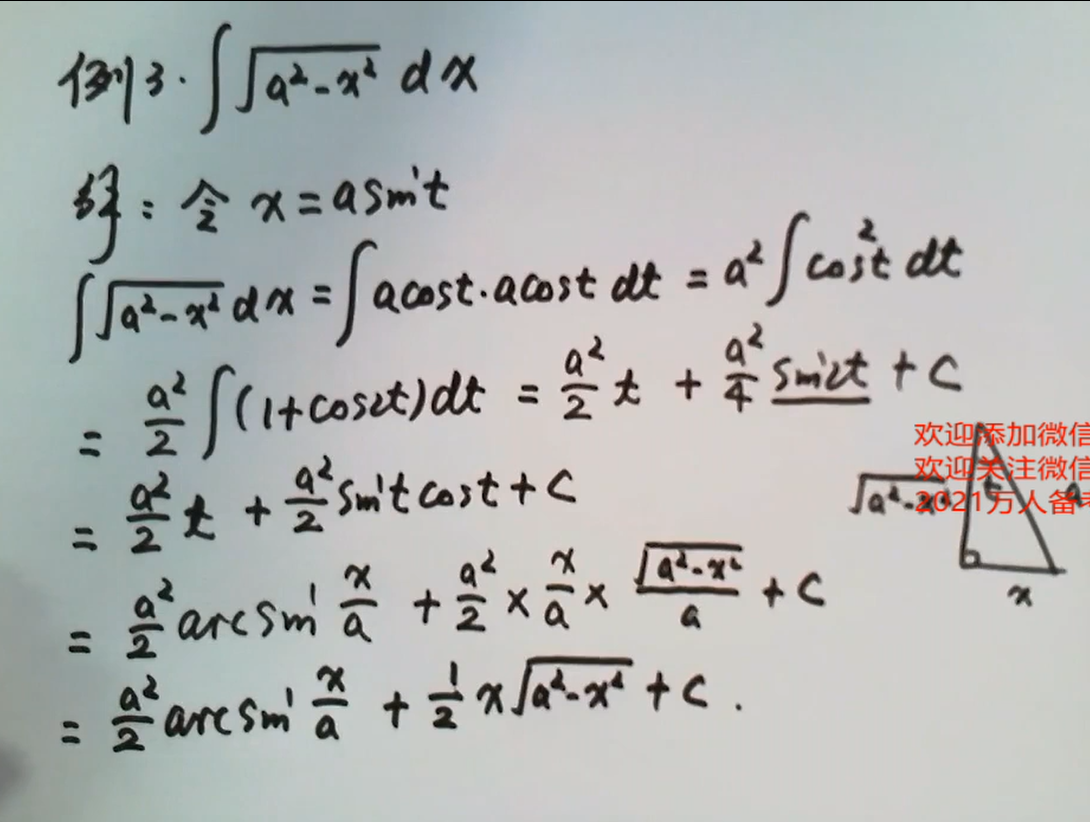 例3. ∫√(a²-x²) dx
解: 令 x = a sin t
∫√(a²-x²) dx = ∫ a cos t · a cos t dt = a² ∫ cos²t dt
= a²/2 ∫ (1+cos2t) dt = a²/2 t + a²/4 sin2t + C
= a²/2 t + a²/2 sin t cos t + C
= a²/2 arcsin x/a + a²/2 × x/a × √(a²-x²)/a + C
= a²/2 arcsin x/a + 1/2 x√(a²-x²) + C .
欢迎添加微信
欢迎关注微信
2021万人备考
√(a²-x²)
t
a
x